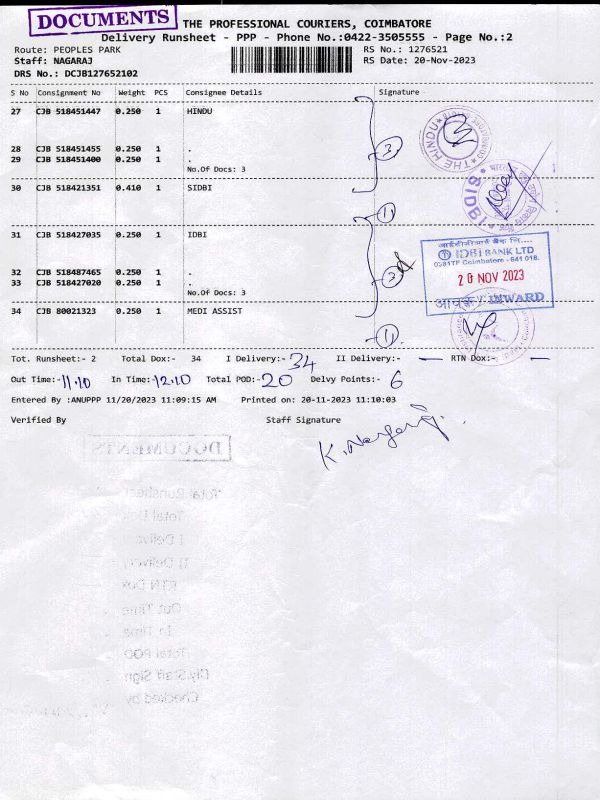 DOCUMENTS
THE PROFESSIONAL COURIERS, COIMBATORE
Delivery Runsheet - PPP - Phone No.:0422-3505555 - Page No.:2
Route: PEOPLES PARK RS No.: 1276521
Staff: NAGARAJ RS Date: 20-Nov-2023
DRS No.: DCJB127652102
S No Consignment No Weight PCS Consignee Details Signature
27 CJB 518451447 0.250 1 HINDU
28 CJB 518451455 0.250 1 .
29 CJB 518451400 0.250 1 .
No.Of Docs: 3
3
THE HINDU
30 CJB 518421351 0.410 1 SIDBI
1
SIDBI
31 CJB 518427035 0.250 1 IDBI
32 CJB 518487465 0.250 1 .
33 CJB 518427020 0.250 1 .
No.Of Docs: 3
3
IDBI BANK LTD
Coimbatore - 641 018.
20 NOV 2023
आवक / INWARD
34 CJB 80021323 0.250 1 MEDI ASSIST
1
Tot. Runsheet:- 2 Total Dox:- 34 I Delivery:- 34 II Delivery:- — RTN Dox:- —
Out Time:- 11.10 In Time:- 12.10 Total POD:- 20 Delvy Points:- 6
Entered By :ANUPPP 11/20/2023 11:09:15 AM Printed on: 20-11-2023 11:10:03
Verified By Staff Signature
K. Nagaraj.
DOCUMENTS
Total Runsheet
Total Dox
I Delivery
II Delivery
RTN Dox
Out Time
In Time
Total POD
Dly.Staff Sign
Checked by